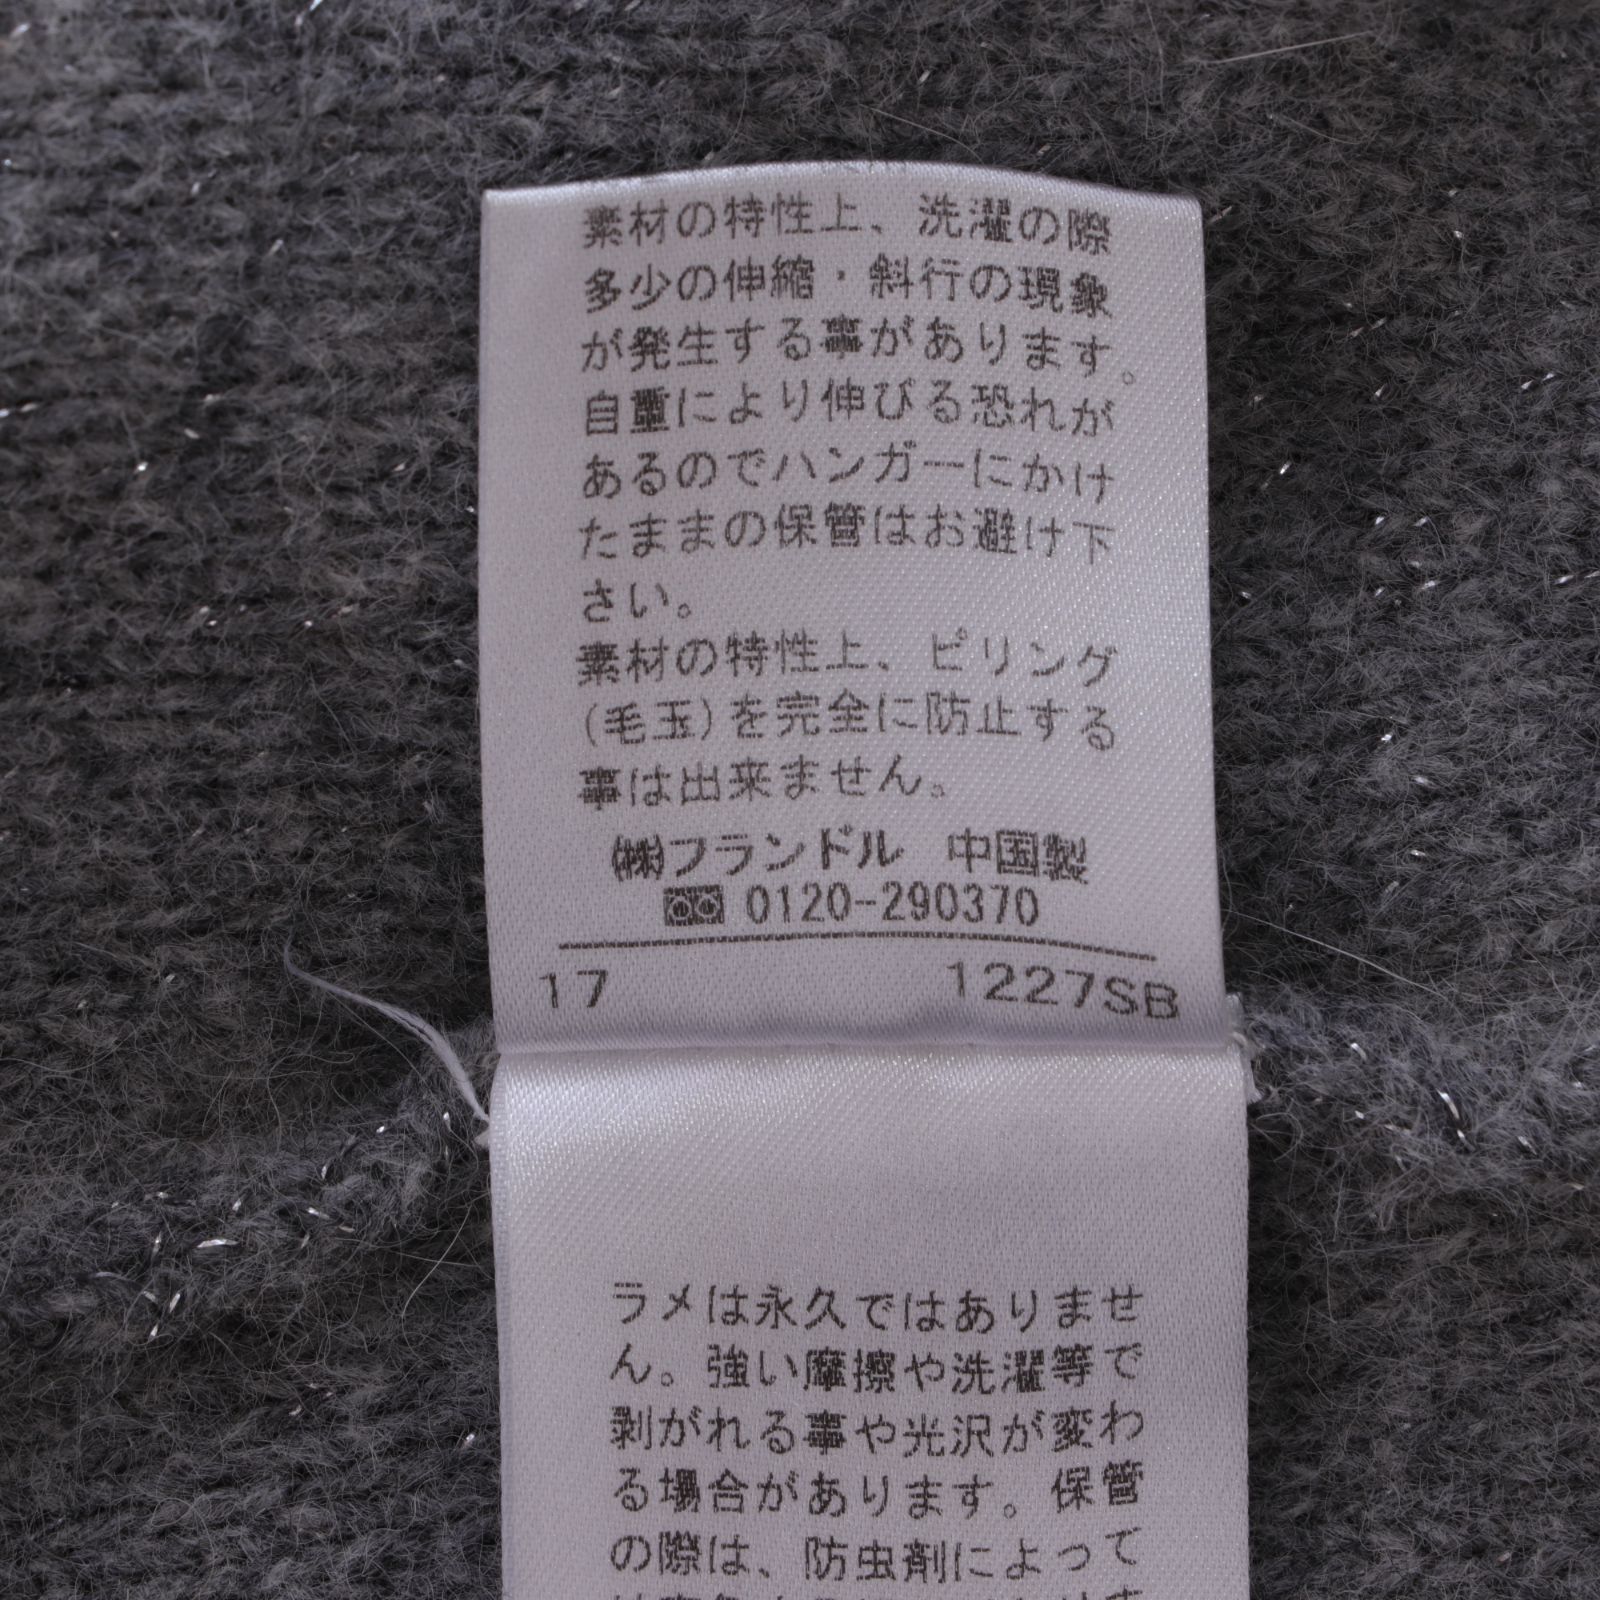 素材の特性上、洗濯の際
多少の伸縮・斜行の現象
が発生する事があります。
自重により伸びる恐れが
あるのでハンガーにかけ
たままの保管はお避け下
さい。
素材の特性上、ピリング
(毛玉)を完全に防止する
事は出来ません。
㈱フランドル 中国製
0120-290370
17 1227SB
ラメは永久ではありませ
ん。強い摩擦や洗濯等で
剥がれる事や光沢が変わ
る場合があります。保管
の際は、防虫剤によって